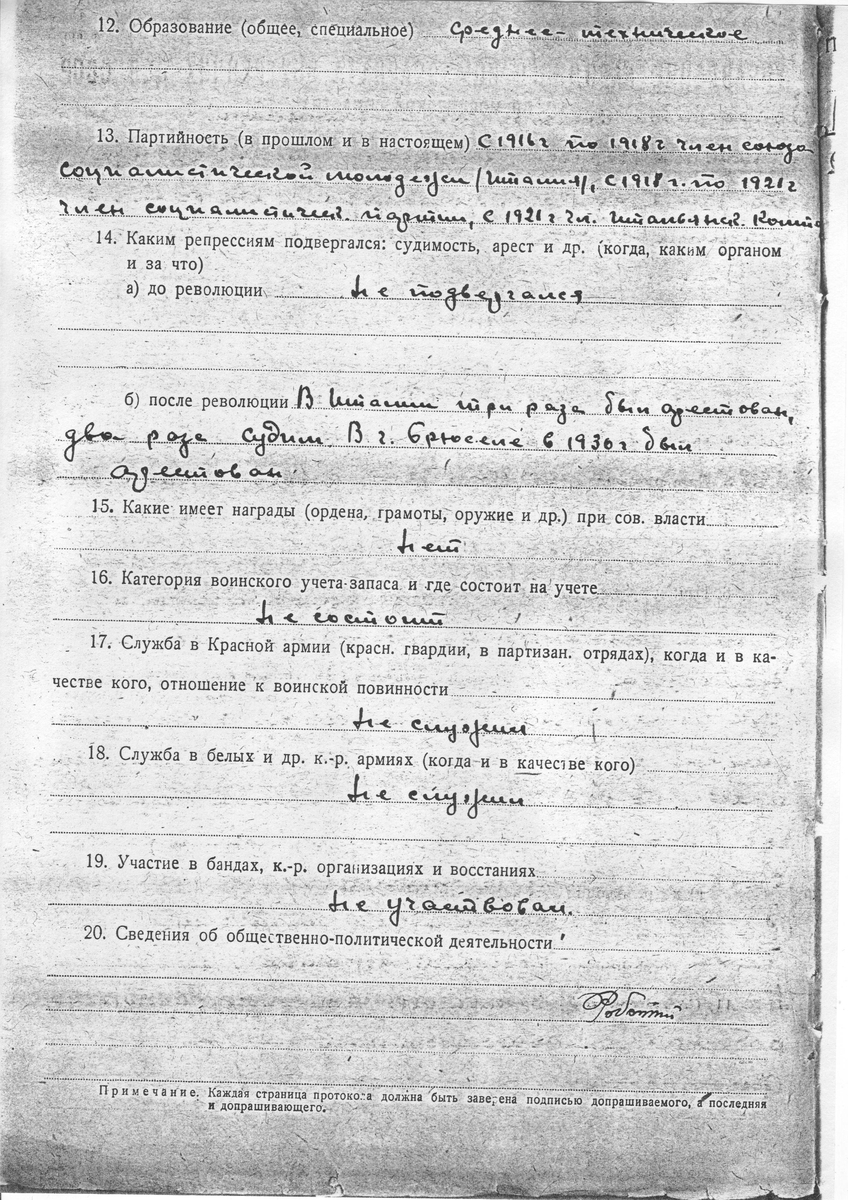 12. Образование (общее, специальное) среднее-техническое
13. Партийность (в прошлом и в настоящем) С 1916 г по 1918 г член союза
социалистической молодежи /Италия/, с 1918 г. по 1921 г
член социалистическ. партии, с 1921 г чл. итальянск. Комп
14. Каким репрессиям подвергался: судимость, арест и др. (когда, каким органом
и за что)
а) до революции не подвергался
б) после революции В Италии три раза был арестован,
два раза судим. В г. Брюселе в 1930 г был
арестован
15. Какие имеет награды (ордена, грамоты, оружие и др.) при сов. власти
нет
16. Категория воинского учета-запаса и где состоит на учете
не состоит
17. Служба в Красной армии (красн. гвардии, в партизан. отрядах), когда и в ка-
честве кого, отношение к воинской повинности
не служил
18. Служба в белых и др. к.-р. армиях (когда и в качестве кого)
не служил
19. Участие в бандах, к.-р. организациях и восстаниях
не участвовал.
20. Сведения об общественно-политической деятельности
Роботти
Примечание. Каждая страница протокола должна быть заверена подписью допрашиваемого, а последняя
и допрашивающего.